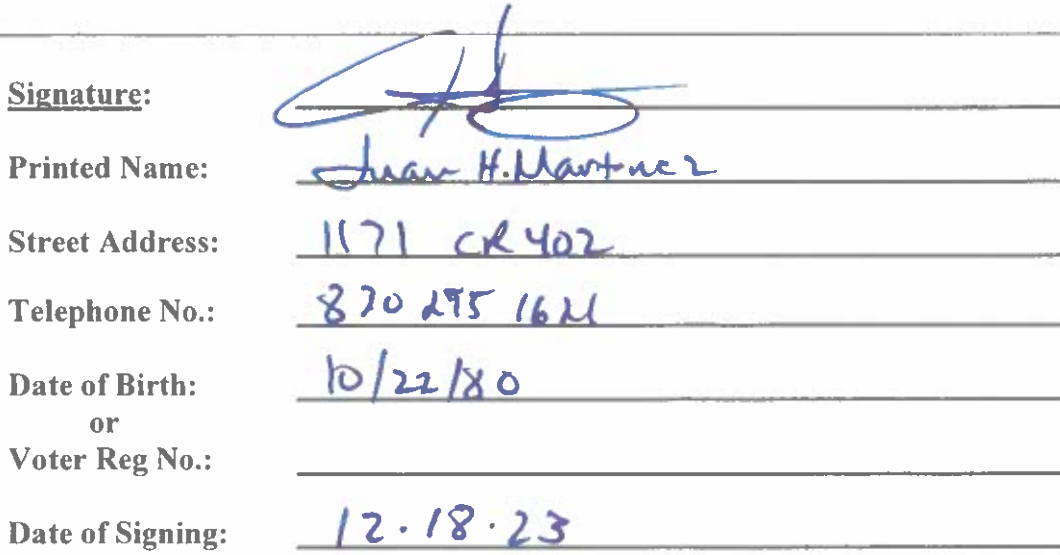 Signature:
Printed Name: Juan H. Martnez
Street Address: 1171 CR 402
Telephone No.: 830
Date of Birth: 10/22/80
or
Voter Reg No.:
Date of Signing: 12.18.23